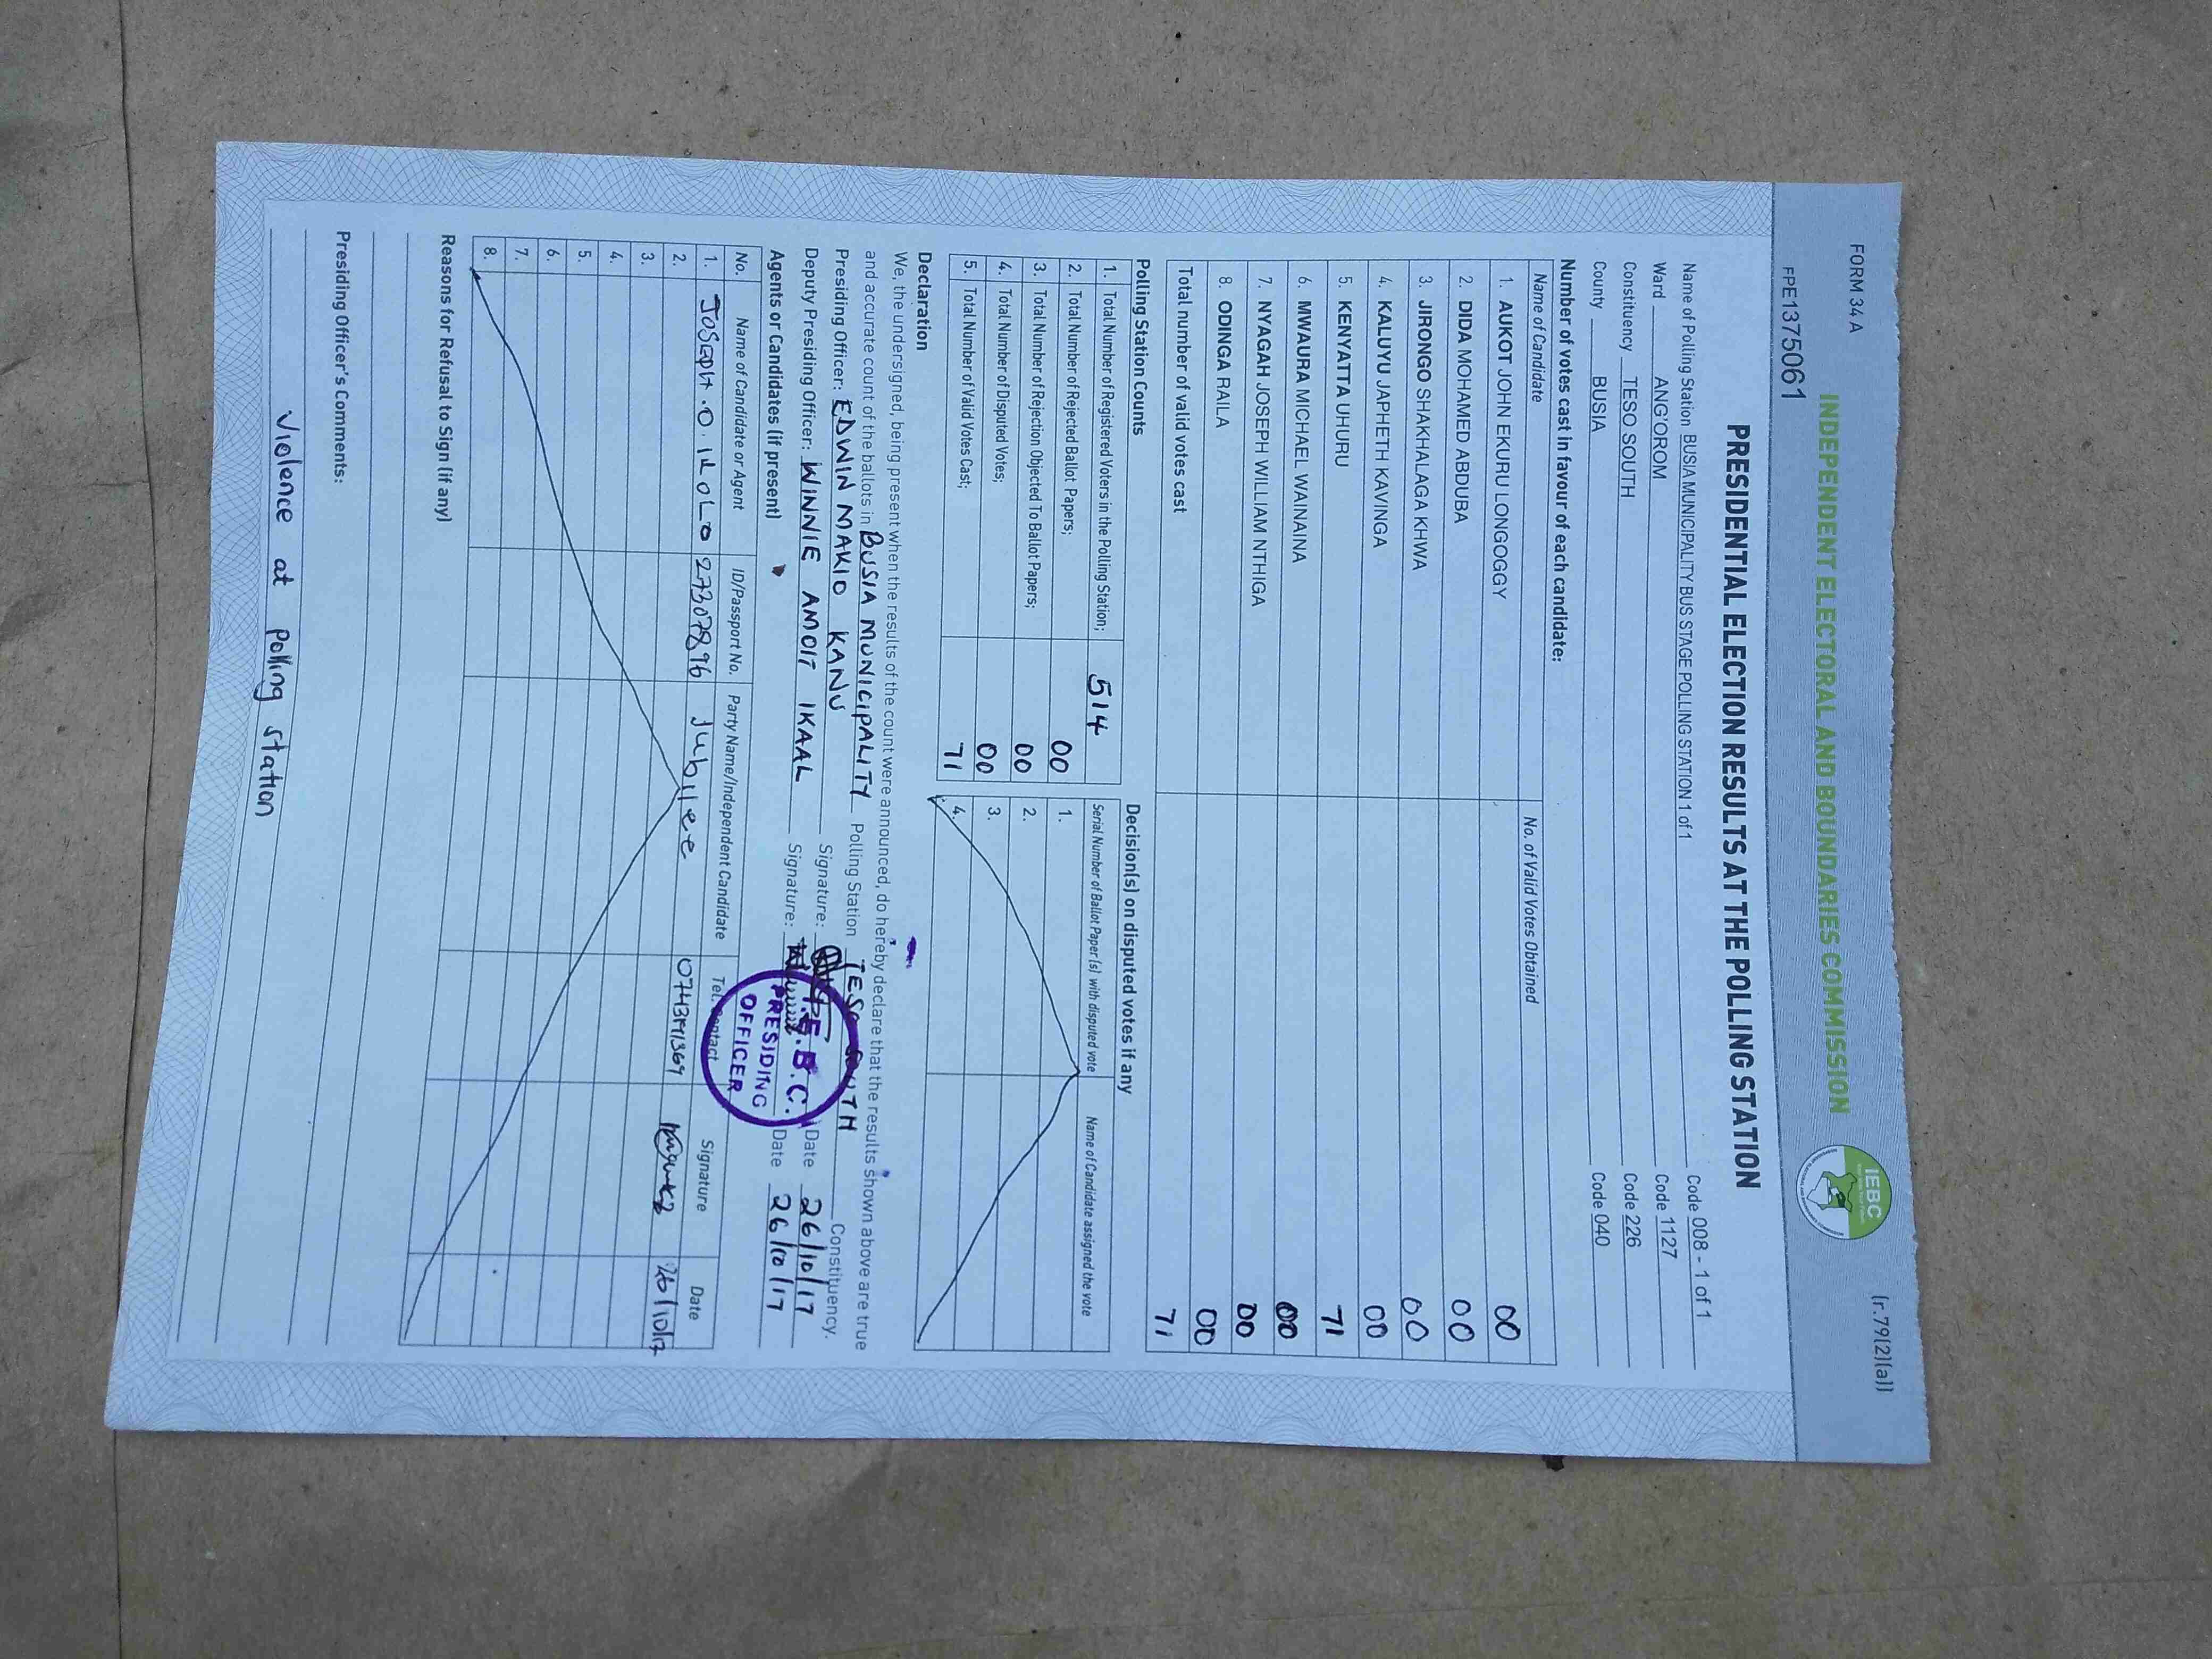 FORM 34 A
(r.79(2)(a))
INDEPENDENT ELECTORAL AND BOUNDARIES COMMISSION
IEBC
FPE1375061
PRESIDENTIAL ELECTION RESULTS AT THE POLLING STATION
Name of Polling Station BUSIA MUNICIPALITY BUS STAGE POLLING STATION 1 of 1 Code 008 - 1 of 1
Ward ANG'OROM Code 1127
Constituency TESO SOUTH Code 226
County BUSIA Code 040
Number of votes cast in favour of each candidate:
Name of Candidate No. of Valid Votes Obtained
1. AUKOT JOHN EKURU LONGOGGY 00
2. DIDA MOHAMED ABDUBA 00
3. JIRONGO SHAKHALAGA KHWA 00
4. KALUYU JAPHETH KAVINGA 00
5. KENYATTA UHURU 71
6. MWAURA MICHAEL WAINAINA 00
7. NYAGAH JOSEPH WILLIAM NTHIGA 00
8. ODINGA RAILA 00
Total number of valid votes cast 71
Polling Station Counts
1. Total Number of Registered Voters in the Polling Station; 514
2. Total Number of Rejected Ballot Papers; 00
3. Total Number of Rejection Objected To Ballot Papers; 00
4. Total Number of Disputed Votes; 00
5. Total Number of Valid Votes Cast; 71
Decision(s) on disputed votes if any
Serial Number of Ballot Paper(s) with disputed vote Name of Candidate assigned the vote
1.
2.
3.
4.
Declaration
We, the undersigned, being present when the results of the count were announced, do hereby declare that the results shown above are true
and accurate count of the ballots in BUSIA MUNICIPALITY Polling Station TESO SOUTH Constituency.
Presiding Officer: EDWIN MAKIO KANU Signature: Date 26/10/17
Deputy Presiding Officer: WINNIE AMOIT IKAAL Signature: Date 26/10/17
I.E.B.C.
PRESIDING
OFFICER
Agents or Candidates (if present)
No. Name of Candidate or Agent ID/Passport No. Party Name/Independent Candidate Tel. Contact Signature Date
1. JOSEPH.O.IKOLO Jubilee 26/10/17
2.
3.
4.
5.
6.
7.
8.
Reasons for Refusal to Sign (if any)
Presiding Officer's Comments:
Violence at polling station